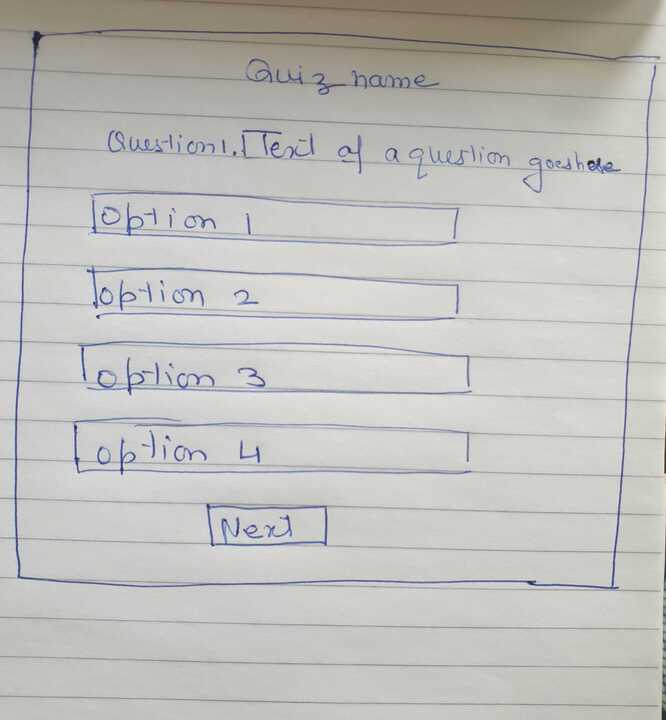 Quiz name
Question 1. Text of a question goes here
Option 1
Option 2
Option 3
Option 4
Next